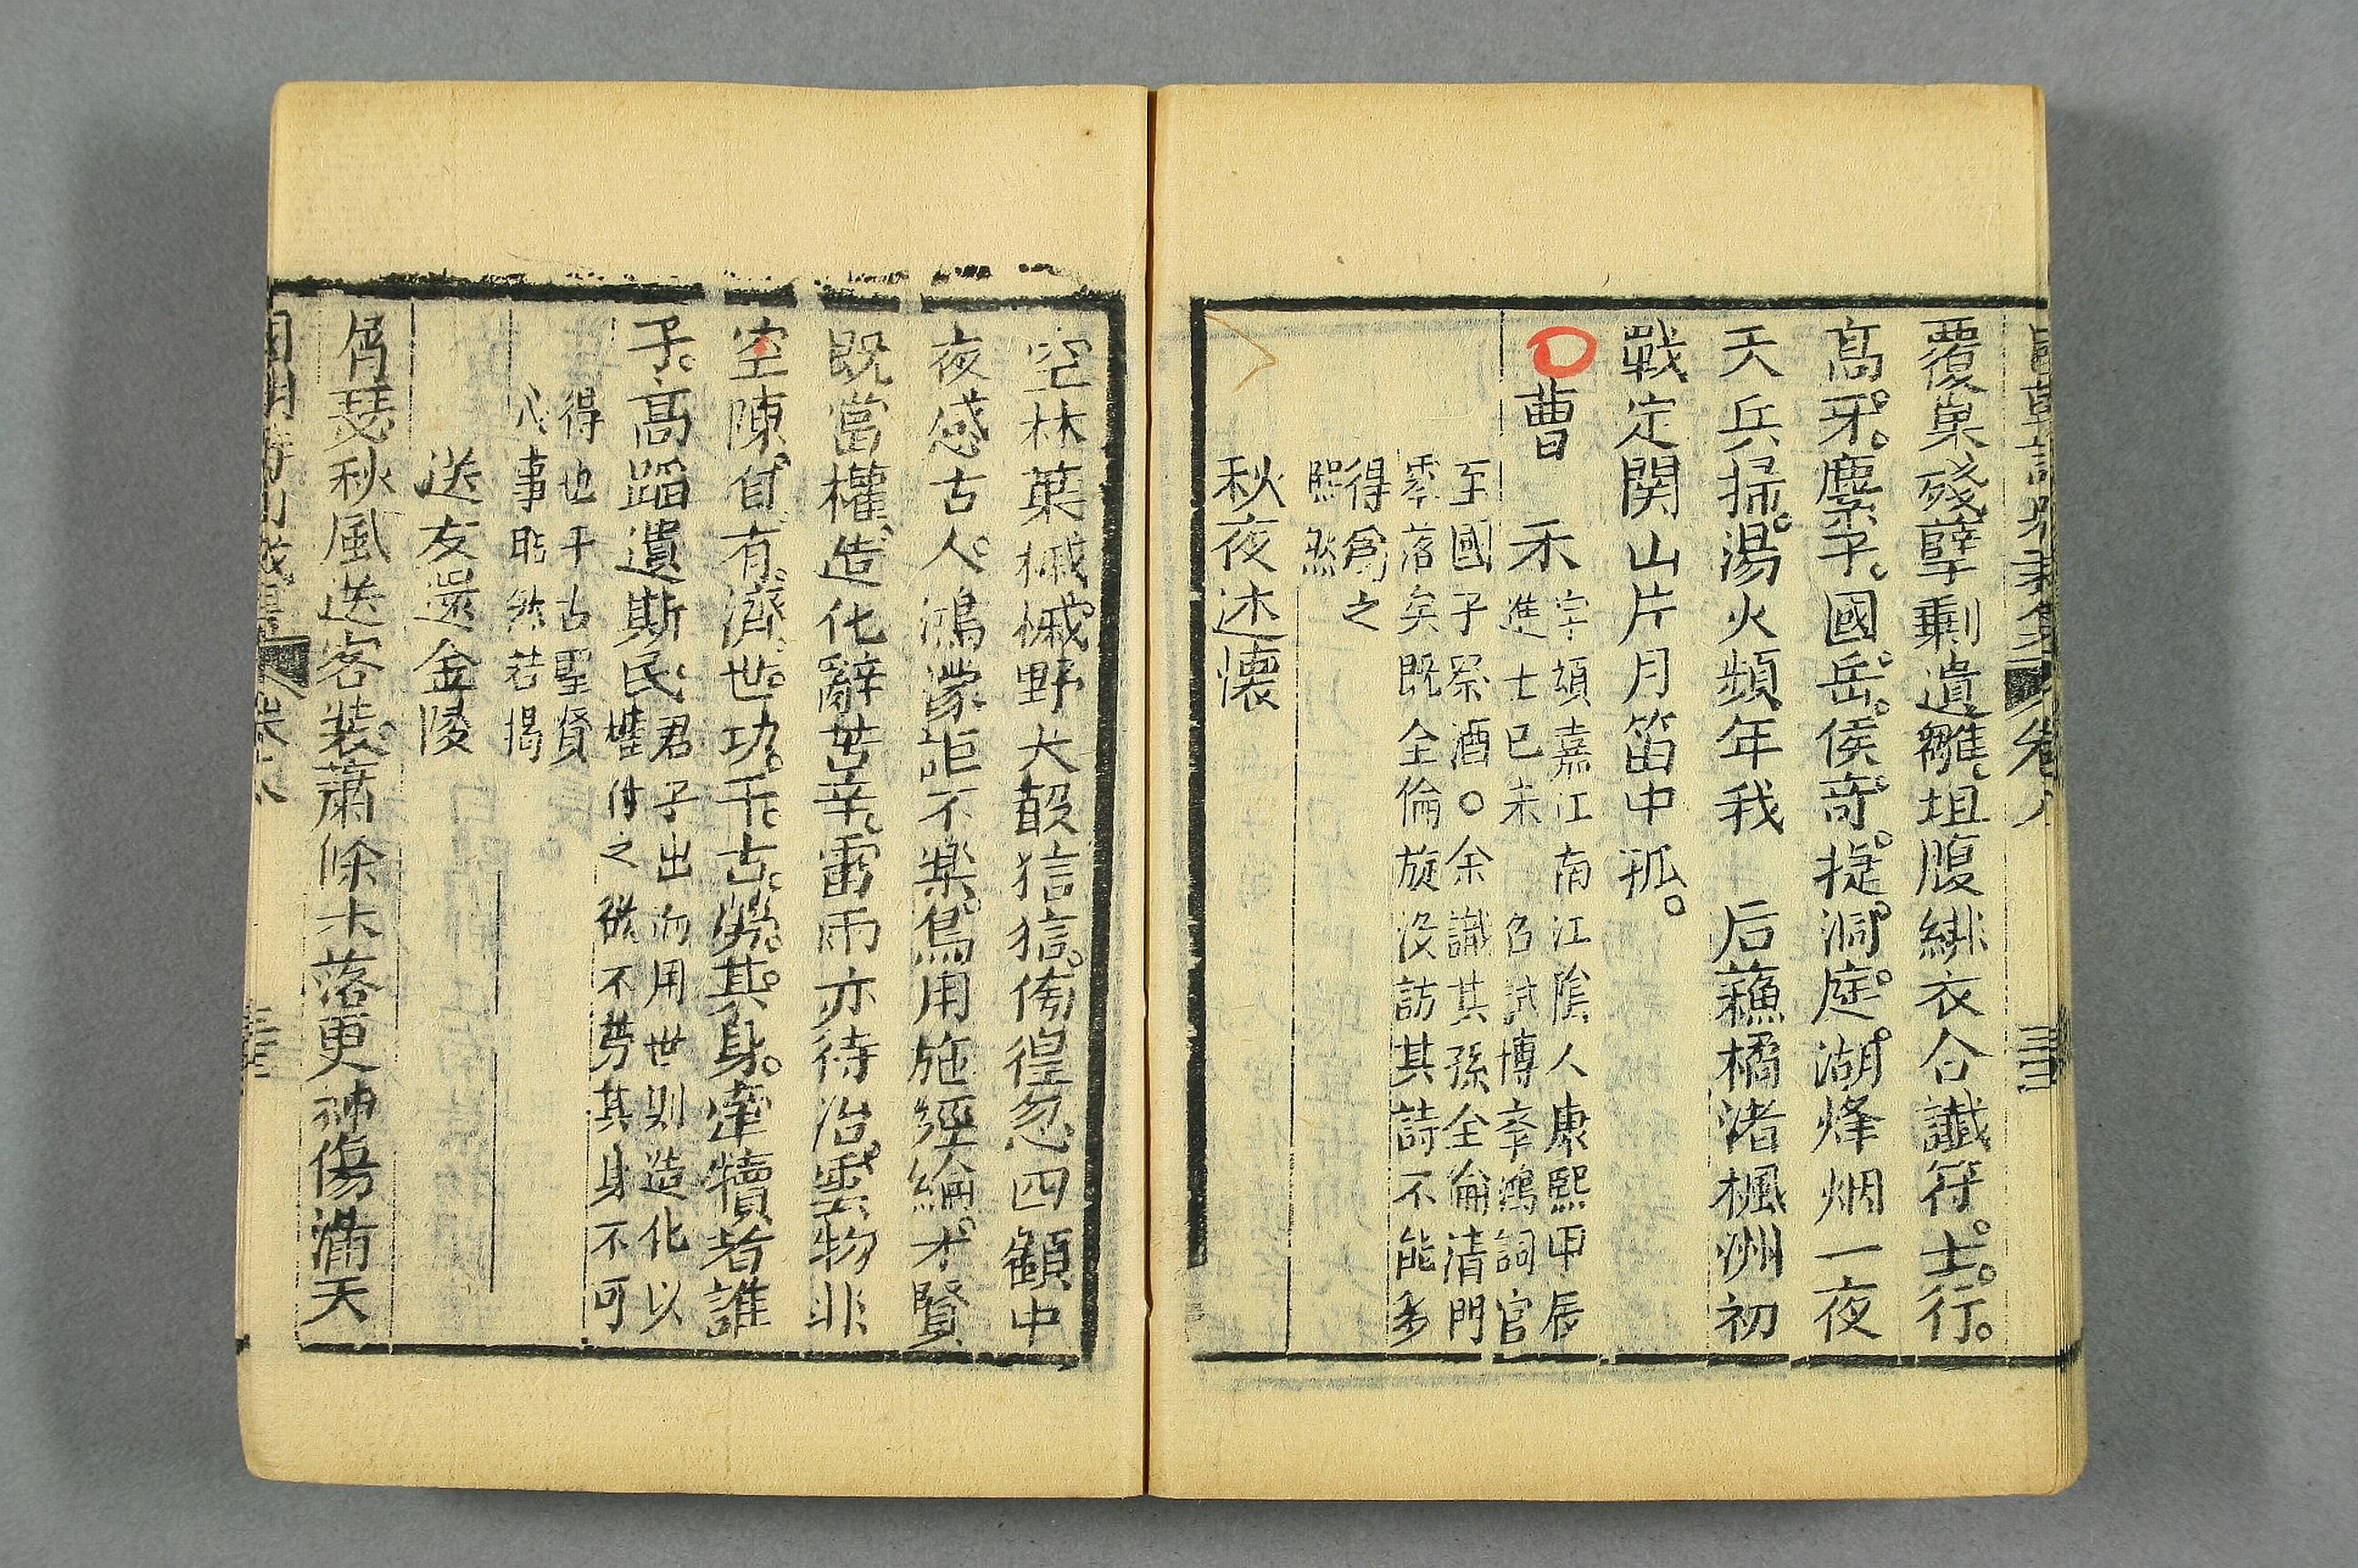 覆巢殘孽剩遺雛坦腹緋衣合讖符士行
高牙麾子國岳侯奇捉洞庭湖烽烟一夜
天兵掃湯火頻年我　后蘓橘渚楓洲初
戰定関山片月笛中孤
曹　禾
字頌嘉江南江陰人康熙甲辰
進士已未　召試博學鴻詞官
至國子祭酒○余識其孫全倫清門
零落矣既全倫旋没訪其詩不能多
得爲之
煕然
秋夜述懷
空林葉槭槭野犬聲狺狺傍徨忽四顧中
夜感古人鴻濛詎不樂焉用施經綸才賢
既當權造化辭苦辛雷雨亦待冶雲物非
空陳自有濟世功千古勞其身牽犢者誰
子高蹈遺斯民
君子出而用世則造化以
權付之欲不勞其身不可
得也千古聖賢
心事昭然若揭
送友還金陵
屑瑟秋風送客裝蕭條木落更神傷滿天